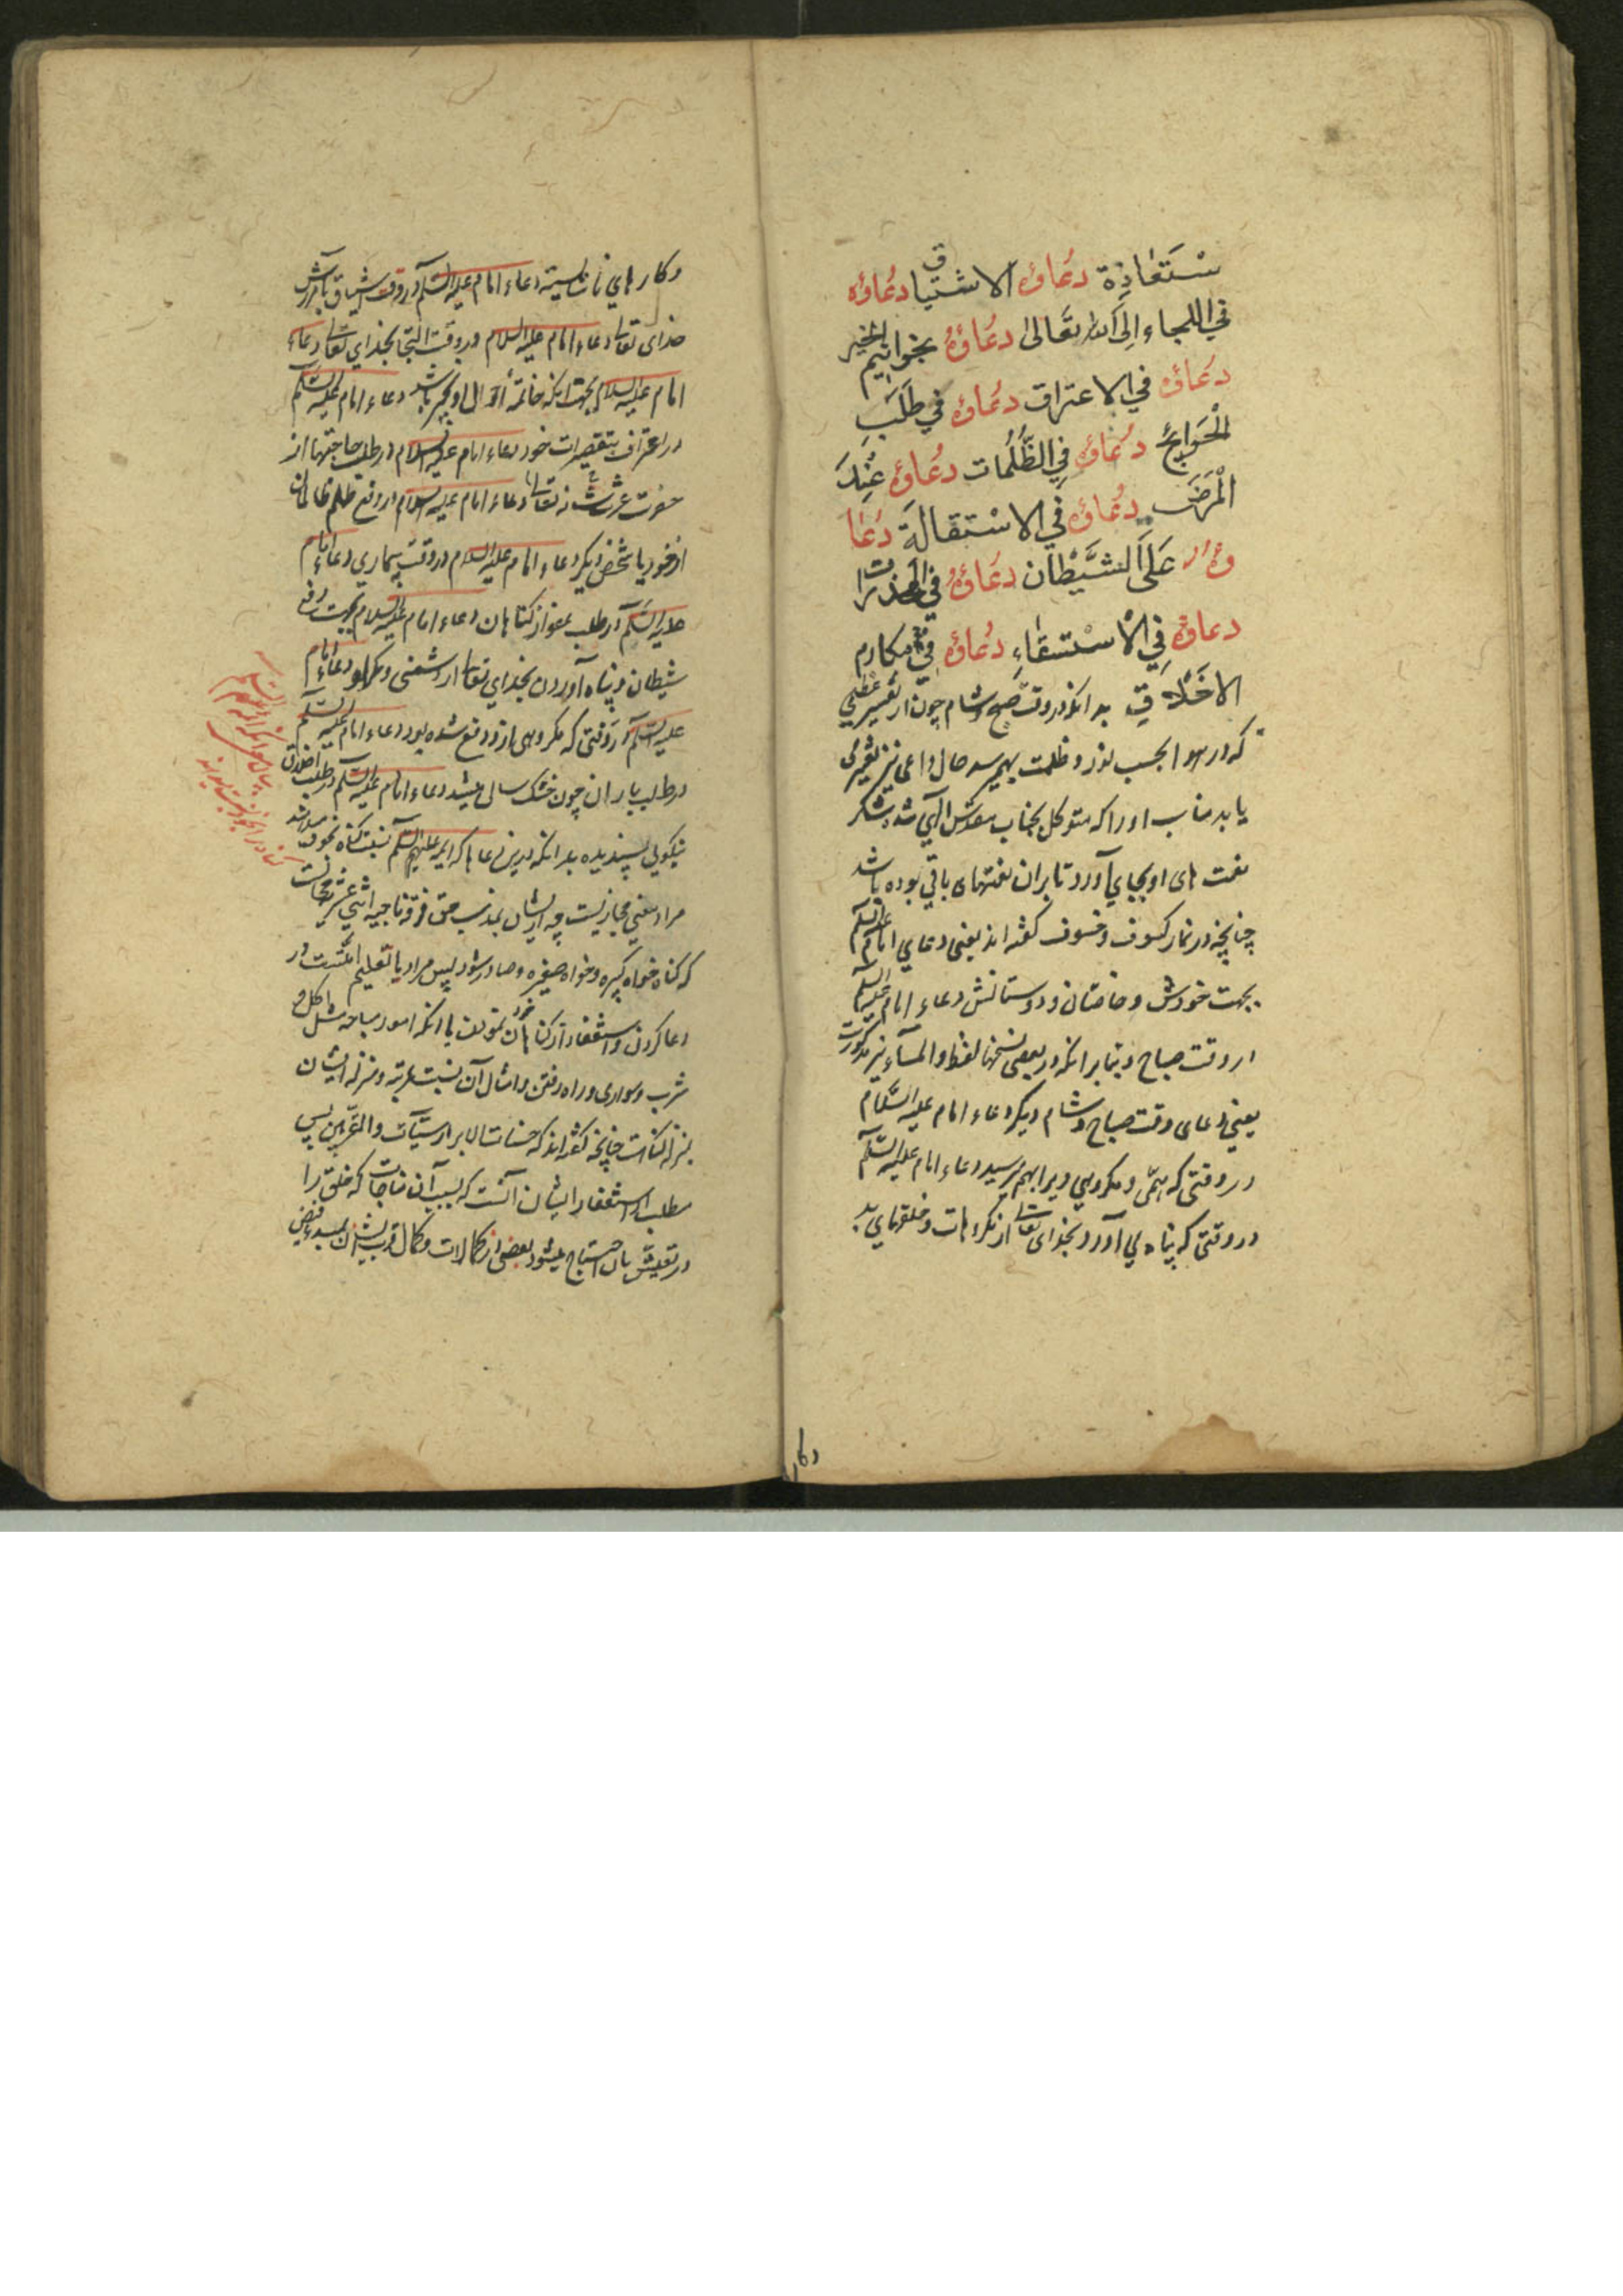 سْتَعاذِة دعُاؤه الاشتیاق دعُاؤه
فی اللجاء اِلیَ اللّه تعَالیٰ دعُاؤهُ بخواتیم الخیر
دعَاؤه فی الاعتراف دعُاؤه فی طَلَبِ
الْحَوایج دعُاؤه فِی الظُّلُمات دعُاؤه عِنْدَ
الْمَرَض دعُاؤه فی الاسْتقالَة دُعَا
ؤهُ عَلَی الشَّیْطان دعَاؤهُ فی المحذرات
دعاؤه فِی الاْسْتسْقاءِ دعُاؤه فی مکارم
الاخَلاقِ بدانکه در وقت صبح و شام چون از تغییر عظیمی
که در هوا بحسب نور و ظلمت بهم رسد حال داعی نیز تغییری
یابد مناسب او را که متوکل بجناب مقدس الٓهی شده شکر
نعمت های او بجای آورد تا بر آن نعتهای باقی بوده باشد
چنانچه در نماز کسوف و خسوف گفته اند یعنی دعای امام علیه السّلم
بجهت خودش و خاصّان و دوستانش دعاء امام علیه السلم
در وقت صباح و بنابر آنکه در بعضی نسخها لفظ والمسآء نیز مذکورست
یعنی دعای وقت صباح و شام دیکر دعاء امام علیه السَّلام
در وقتی که همّی و مکروهی ویرا بهم میرسید دعاء امام علیه السّلم
در وقتی که پناه می آورد بخدای تعالی از مکروهات و خلقهای بد
وکا
و کارهای ناشایسته دعاء امام علیه السّلم در وقت اشتیاق بآمرزش
خدای تعالی دعاء امام علیه السلام در وقت التجا بخدای تعالی دعاء
امام علیه السلام بجهت آنکه خاتمهٔ احوال او بخیر باشد دعاء امام علیه السّلم
در اعتراف بتقصیرات خود دعاء امام علیه السلام در طلب حاجتها از
حضرت عزت شانه تعالی دعاء امام علیه السلام در دفع ظلم ظالمان
از خود یا شخص دیگر دعاء امام علیه السلام در وقت بیماری دعاء امام
علیه السّلم در طلب عفو از گناهان دعاء امام علیه السلام بجهت دفع
شیطان و پناه آوردن بخدای تعالی از دشمنی و مکر او دعاء امام
علیه السّلم در وقتی که مکروهی ازو دفع شده بود دعاء امام علیه السّلم
در طلب باران چون خشک سالی میشد دعاء امام علیه السّلم در طلب اخلاق
نیکوی پسندیده بدانکه درین دعاها که ایمه علیهم السّلم نسبت گناه بخود میدهند
مراد معنی مجازیست چه ایشان بمذهب حق فرقهٔ ناجیه اثنی عشریه محالست
که گناه خواه کبیره و خواه صغیره و صادر شود پس مراد یا تعلیم امّتست در
دعا کردن و استغفار از گناهان خود نمودن یا آنکه امور مباحه مثل اکل و
شرب و سواری و راه رفتن و امثال آن نسبت بمرتبه و منزله ایشان
بمنزله گناست چنانچه گفته اند که حسنات الابرار سیّئآت المقرّبین پس
مطلب از استغفار ایشان آنست که بسبب آن مناجات که خلق را
در تعیش بآن احتیاج میشود بعضی از کمالات و کمال قرب ایشان بمبدء فیض